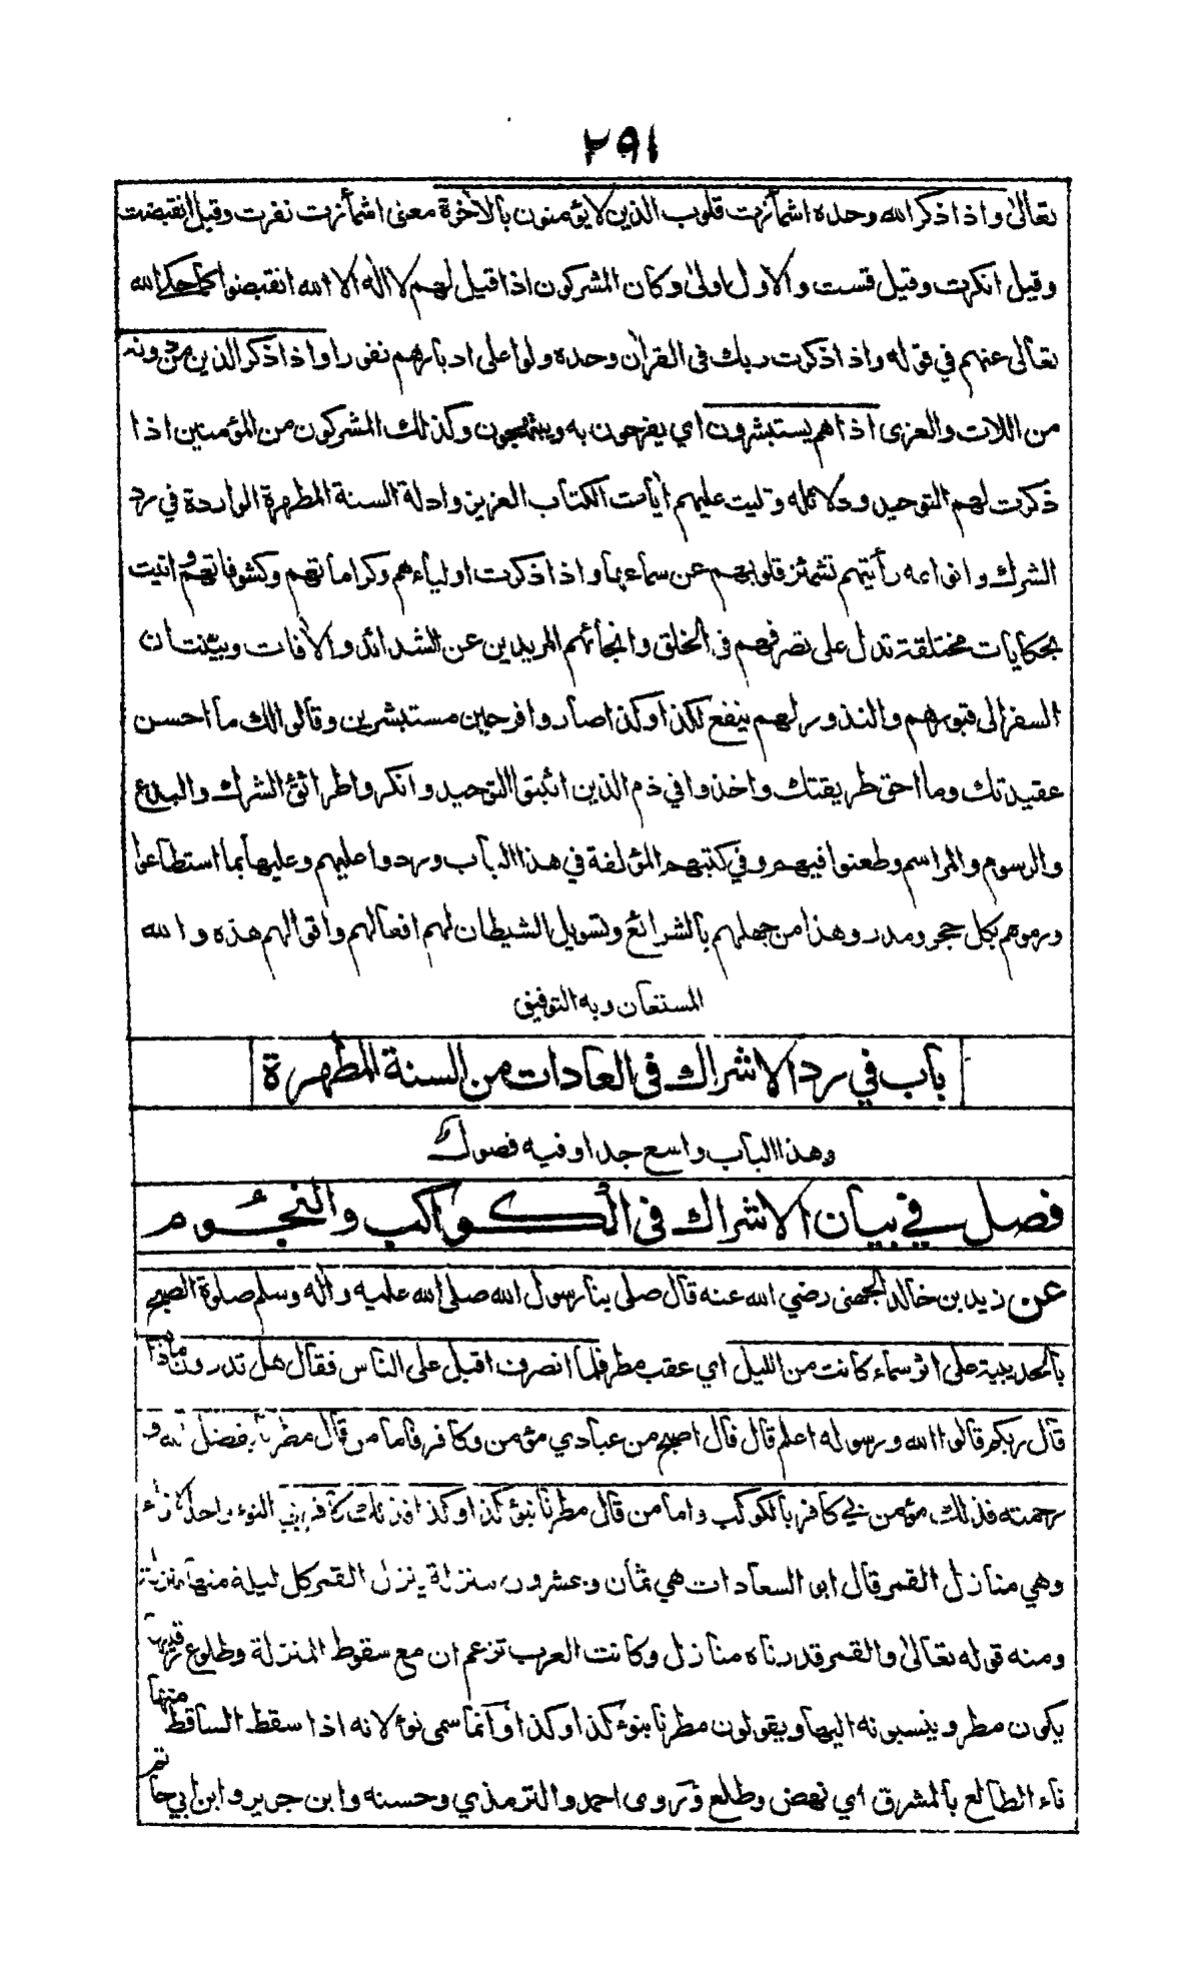 ٢٩١
تعالى واذا ذكر الله وحده اشمأزت قلوب الذين لا يؤمنون بالآخرة معنى اشمأزت نفرت وقيل انقبضت
وقيل انكرت وقيل قست والاول اولى وكان المشركون اذا قيل لهم لا اله الا الله انقبضوا كما حكى الله
تعالى عنهم في قوله واذا ذكرت ربك في القرآن وحده ولوا على ادبارهم نفورا واذا ذكر الذين من دونه
من اللات والعزى اذا هم يستبشرون اي يفرحون به ويبتهجون وكذلك المشركون من المؤمنين اذا
ذكرت لهم التوحيد ودلائله وتليت عليهم آيات الكتاب العزيز وادلة السنة المطهرة الواردة في رد
الشرك وانواعه رأيتهم تشمئز قلوبهم عن سماعها واذا ذكرت اولياءهم وكراماتهم وكشوفاتهم واتيت
بحكايات مختلقة تدل على تصرفهم في الخلق وانجائهم المريدين عن الشدائد والآفات وبينت ان
السفر الى قبورهم والنذور لهم ينفع لكذا وكذا صاروا فرحين مستبشرين وقالوا لك ما احسن
عقيدتك وما احق طريقتك واخذوا في ذم الذين اثبتوا التوحيد وانكروا طرائق الشرك والبدع
والرسوم والمراسم وطعنوا فيهم وفي كتبهم المؤلفة في هذا الباب وردوا عليهم وعليها بما استطاعوا
ورموهم بكل حجر ومدر وهذا من جهلهم بالشرائع وتسويل الشيطان لهم افعالهم واقوالهم هذه والله
المستعان وبه التوفيق
باب في رد الاشراك في العادات من السنة المطهرة
وهذا الباب واسع جدا وفيه فصول
فصل في بيان الاشراك في الكواكب والنجوم
عن زيد بن خالد الجهني رضي الله عنه قال صلى بنا رسول الله صلى الله عليه واله وسلم صلوة الصبح
بالحديبية على اثر سماء كانت من الليل اي عقب مطر فلما انصرف اقبل على الناس فقال هل تدرون ماذا
قال ربكم قالوا الله ورسوله اعلم قال قال اصبح من عبادي مؤمن وكافر فاما من قال مطرنا بفضل الله و
رحمته فذلك مؤمن بي كافر بالكوكب واما من قال مطرنا بنؤ كذا وكذا فذلك كافر بي النوء واحد الانواء
وهي منازل القمر قال ابو السعادات هي ثمان وعشرون منزلة ينزل القمر كل ليلة منها منزلة
ومنه قوله تعالى والقمر قدرناه منازل وكانت العرب تزعم ان مع سقوط المنزلة وطلوع رقيبها
يكون مطر وينسبونه اليها ويقولون مطرنا بنوء كذا وكذا وانما سمى نوءً لانه اذا سقط الساقط منها
ناء الطالع بالمشرق اي نهض وطلع وروى احمد والترمذي وحسنه وابن جرير وابن ابي حاتم